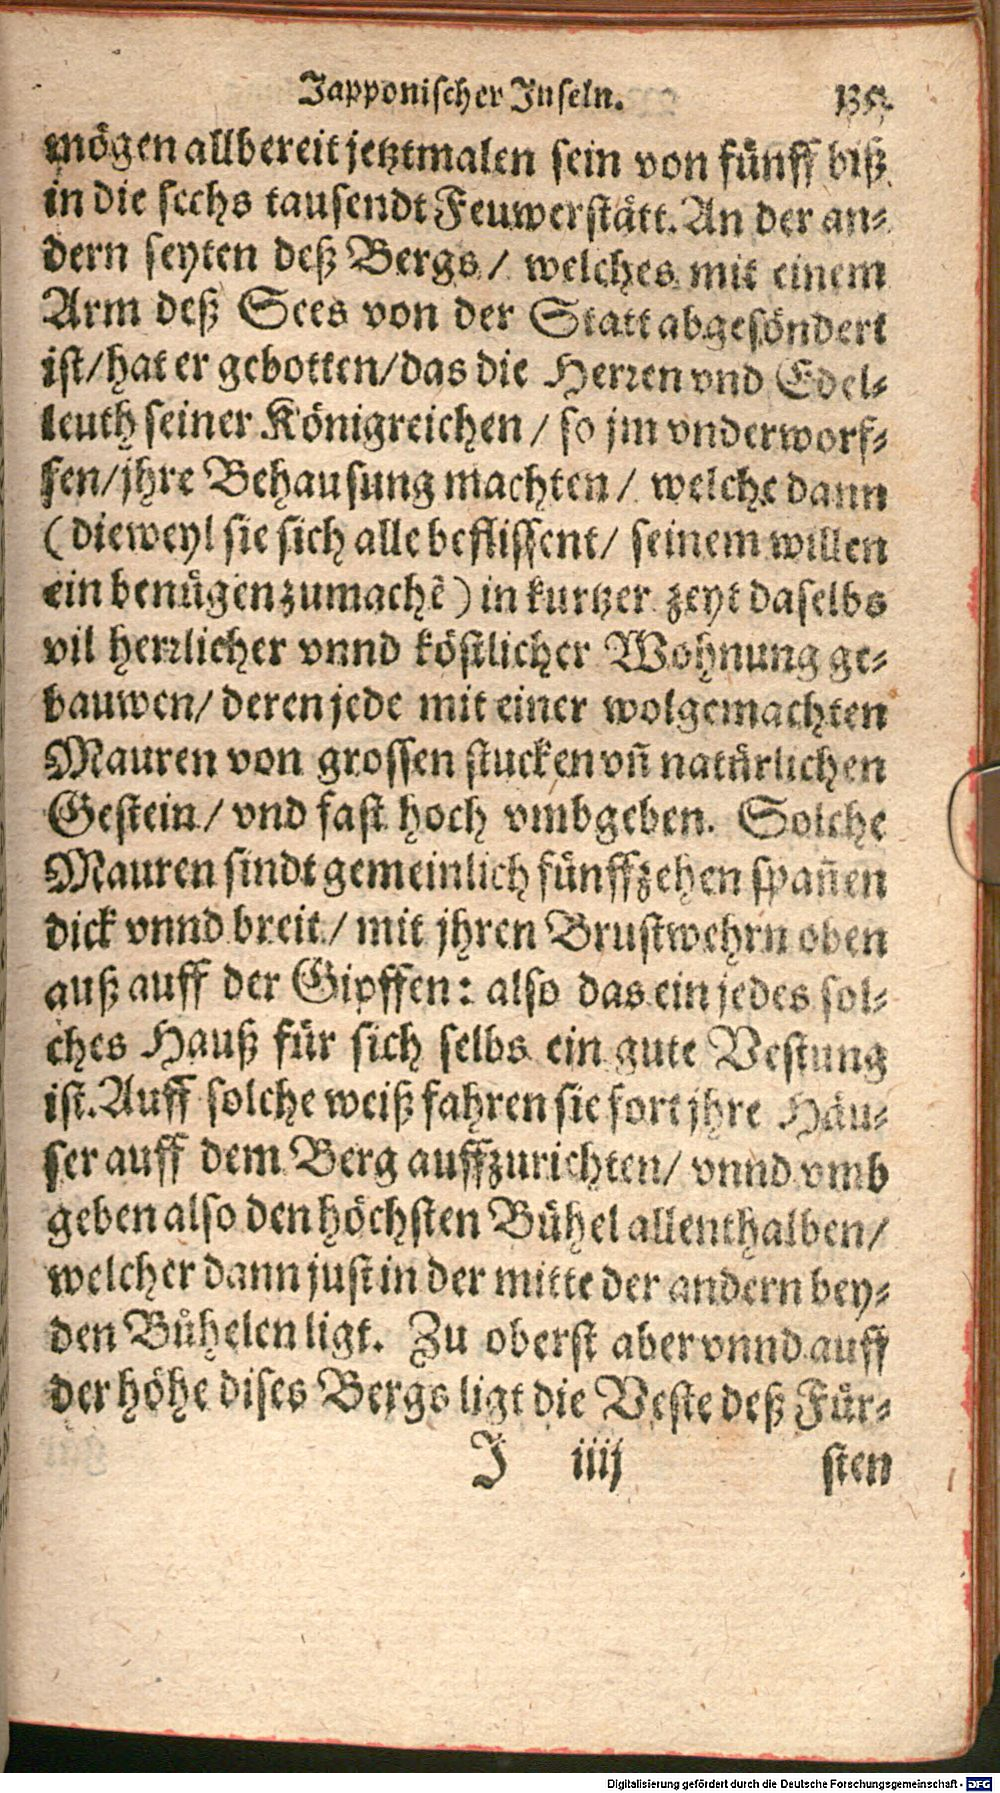 Japponischer Inseln. 135.
mögen allbereit jetztmalen sein von fünff biß
in die sechs tausendt Feuwerstätt. An der an-
dern seyten deß Bergs / welches mit einem
Arm deß Sees von der Statt abgesöndert
ist / hat er gebotten / das die Herren vnd Edel-
leuth seiner Königreichen / so jm vnderworf-
fen / jhre Behausung machten / welche dann
( dieweyl sie sich alle beflissent / seinem willen
ein benügen zumachẽ ) in kurtzer zeyt daselbs
vil herrlicher vnnd köstlicher Wohnung ge-
bauwen / deren jede mit einer wolgemachten
Mauren von grossen stucken vñ natürlichen
Gestein / vnd fast hoch vmbgeben. Solche
Mauren sindt gemeinlich fünffzehen spañen
dick vnnd breit / mit jhren Brustwehrn oben
auß auff der Gipffen: also das ein jedes sol-
ches Hauß für sich selbs ein gute Vestung
ist. Auff solche weiß fahren sie fort jhre Häu-
ser auff dem Berg auffzurichten / vnnd vmb
geben also den höchsten Bühel allenthalben /
welcher dann just in der mitte der andern bey-
den Bühelen ligt. Zu oberst aber vnnd auff
der höhe dises Bergs ligt die Veste deß Für-
J iiij sten
Digitalisierung gefördert durch die Deutsche Forschungsgemeinschaft - DFG